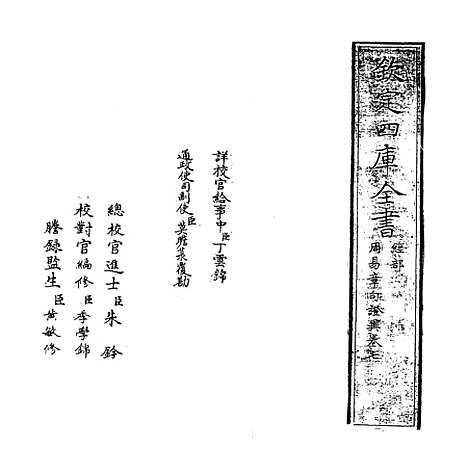 欽定四庫全書
經部
周易章句證異卷七
詳校官給事中臣丁雲錦
通政使司副使臣莫瞻菉覆勘
總校官進士臣朱鈐
校對官編修臣季學錦
謄錄監生臣黃敏修